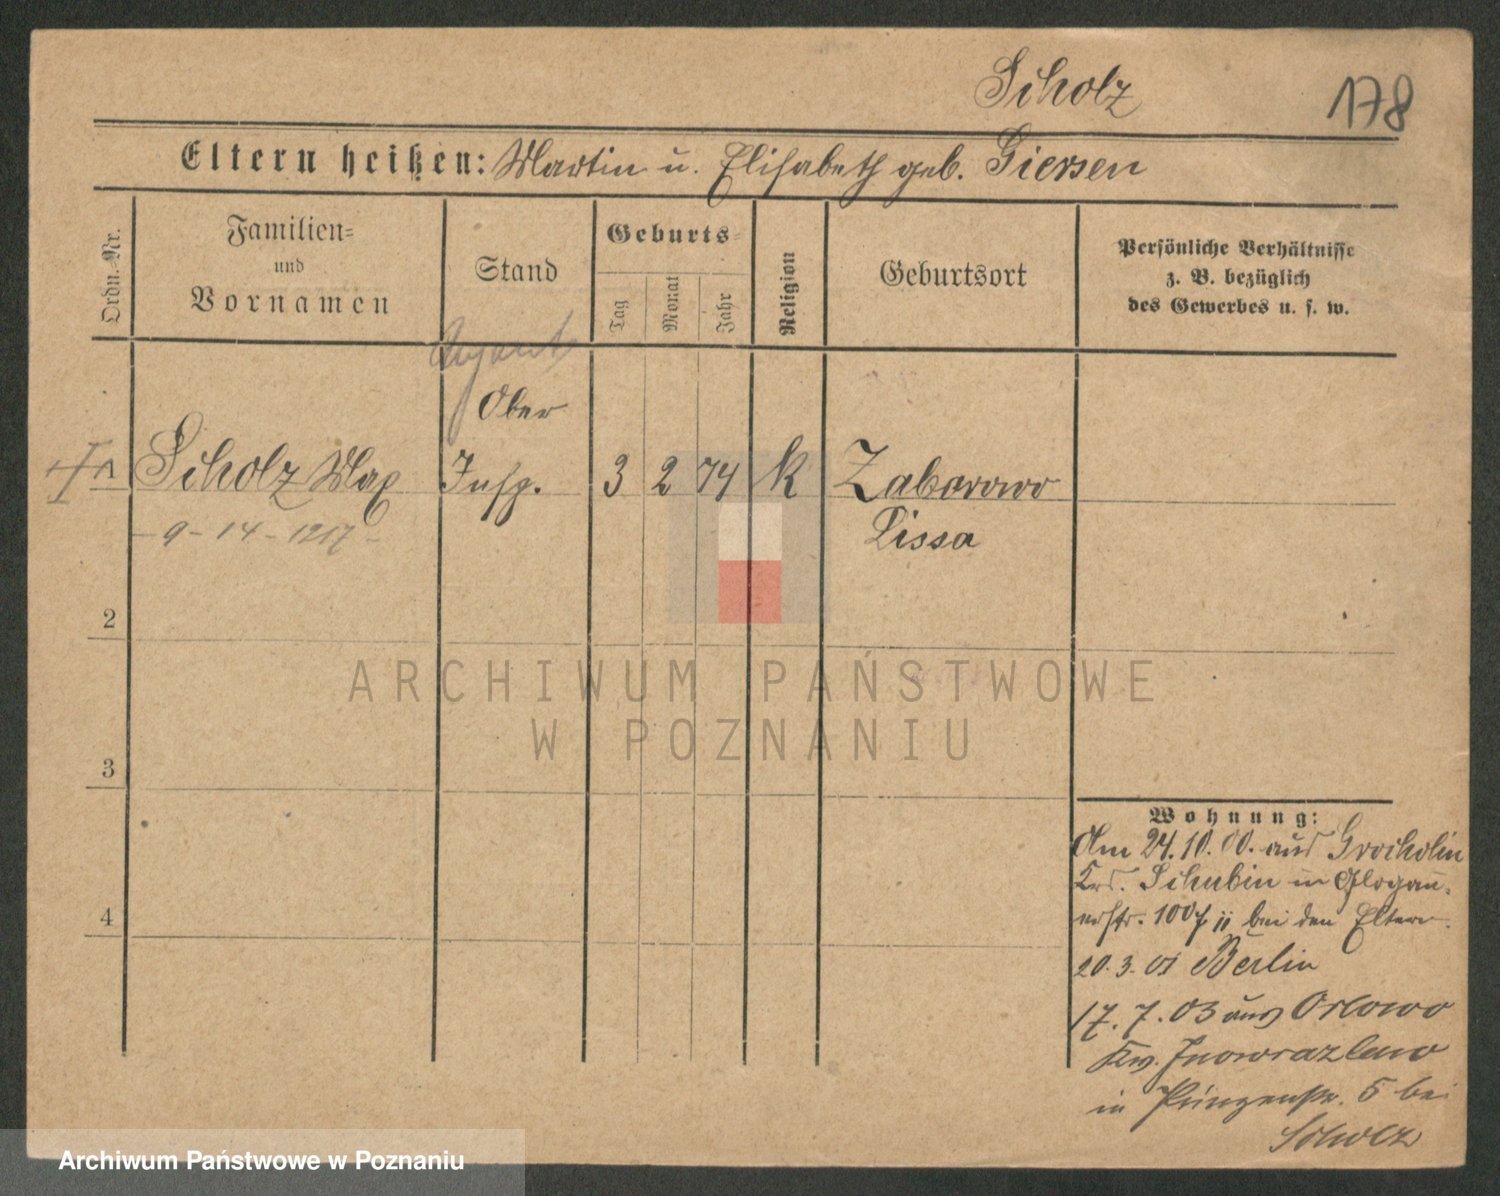 Scholz
178
Eltern heißen: Martin u. Elisabeth geb. Giersen
Ordn.-Nr.
Familien-
und
Vornamen
Stand
Geburts-
Tag
Monat
Jahr
Religion
Geburtsort
Persönliche Verhältnisse
z. B. bezüglich
des Gewerbes u. s. w.
Ober
1 Scholz Max Insp. 3 2 74 k Zaborowo
-9-14-1217- Lissa
2
3
4
ARCHIWUM PAŃSTWOWE
W POZNANIU
Wohnung:
Am 24.10.00. aus Grocholin
Krs. Schubin in Glogau-
erstr. 100 bei den Eltern.
20.3.01 Berlin
17.7.03 aus Orlowo
Kr. Inowrazlaw
in Prinzenstr. 5 bei
Scholz
Archiwum Państwowe w Poznaniu